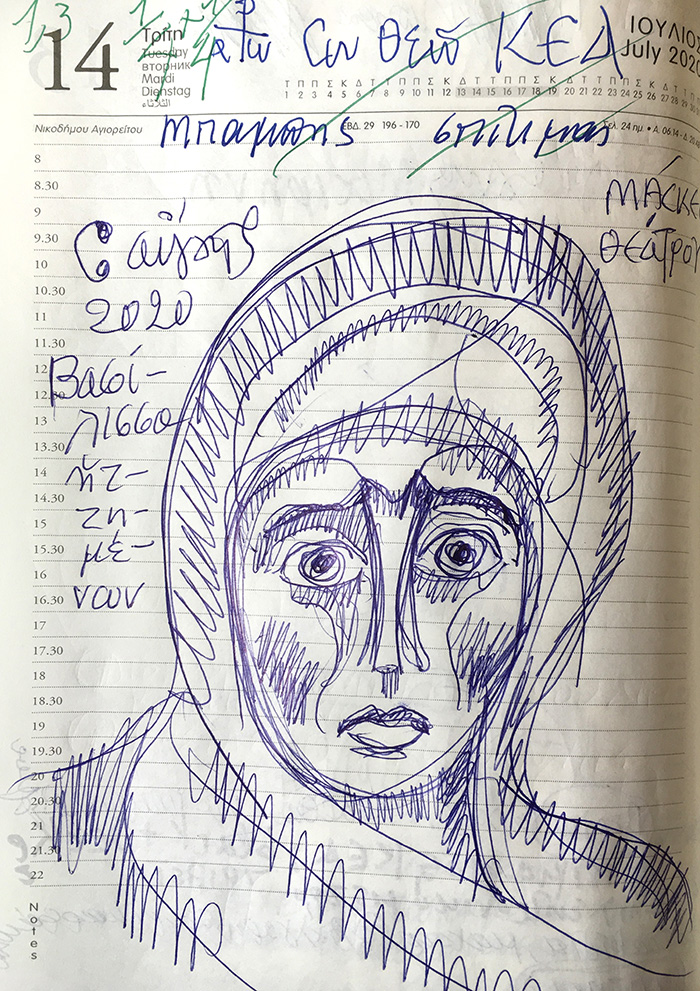 14
Τρίτη
Tuesday
вторник
Mardi
Dienstag
الثلاثاء
ΙΟΥΛΙΟΣ
July 2020
Συν Θεώ ΚΕΔ
Τ Π Π Σ Κ Δ Τ Τ Π Π Σ Κ Δ Τ Τ Π Π Σ Κ Δ Τ Τ Π Π Σ Κ Δ Τ Τ Π
1 2 3 4 5 6 7 8 9 10 11 12 13 14 15 16 17 18 19 20 21 22 23 24 25 26 27 28 29
Νικοδήμου Αγιορείτου
ΕΒΔ. 29 196 - 170
Σελ. 24 ημ. • Α. 06.14 - Δ.
Μπάμπης σπίτι μας
ΜΑΣΚΕ
ΘΕΑΤΡΟΥ
2020
Βασί-
λισσα
ητ-
τη-
μέ-
νουν
8
8.30
9
9.30
10
10.30
11
11.30
12
12.30
13
13.30
14
14.30
15
15.30
16
16.30
17
17.30
18
18.30
19
19.30
20
20.30
21
21.30
22
Notes